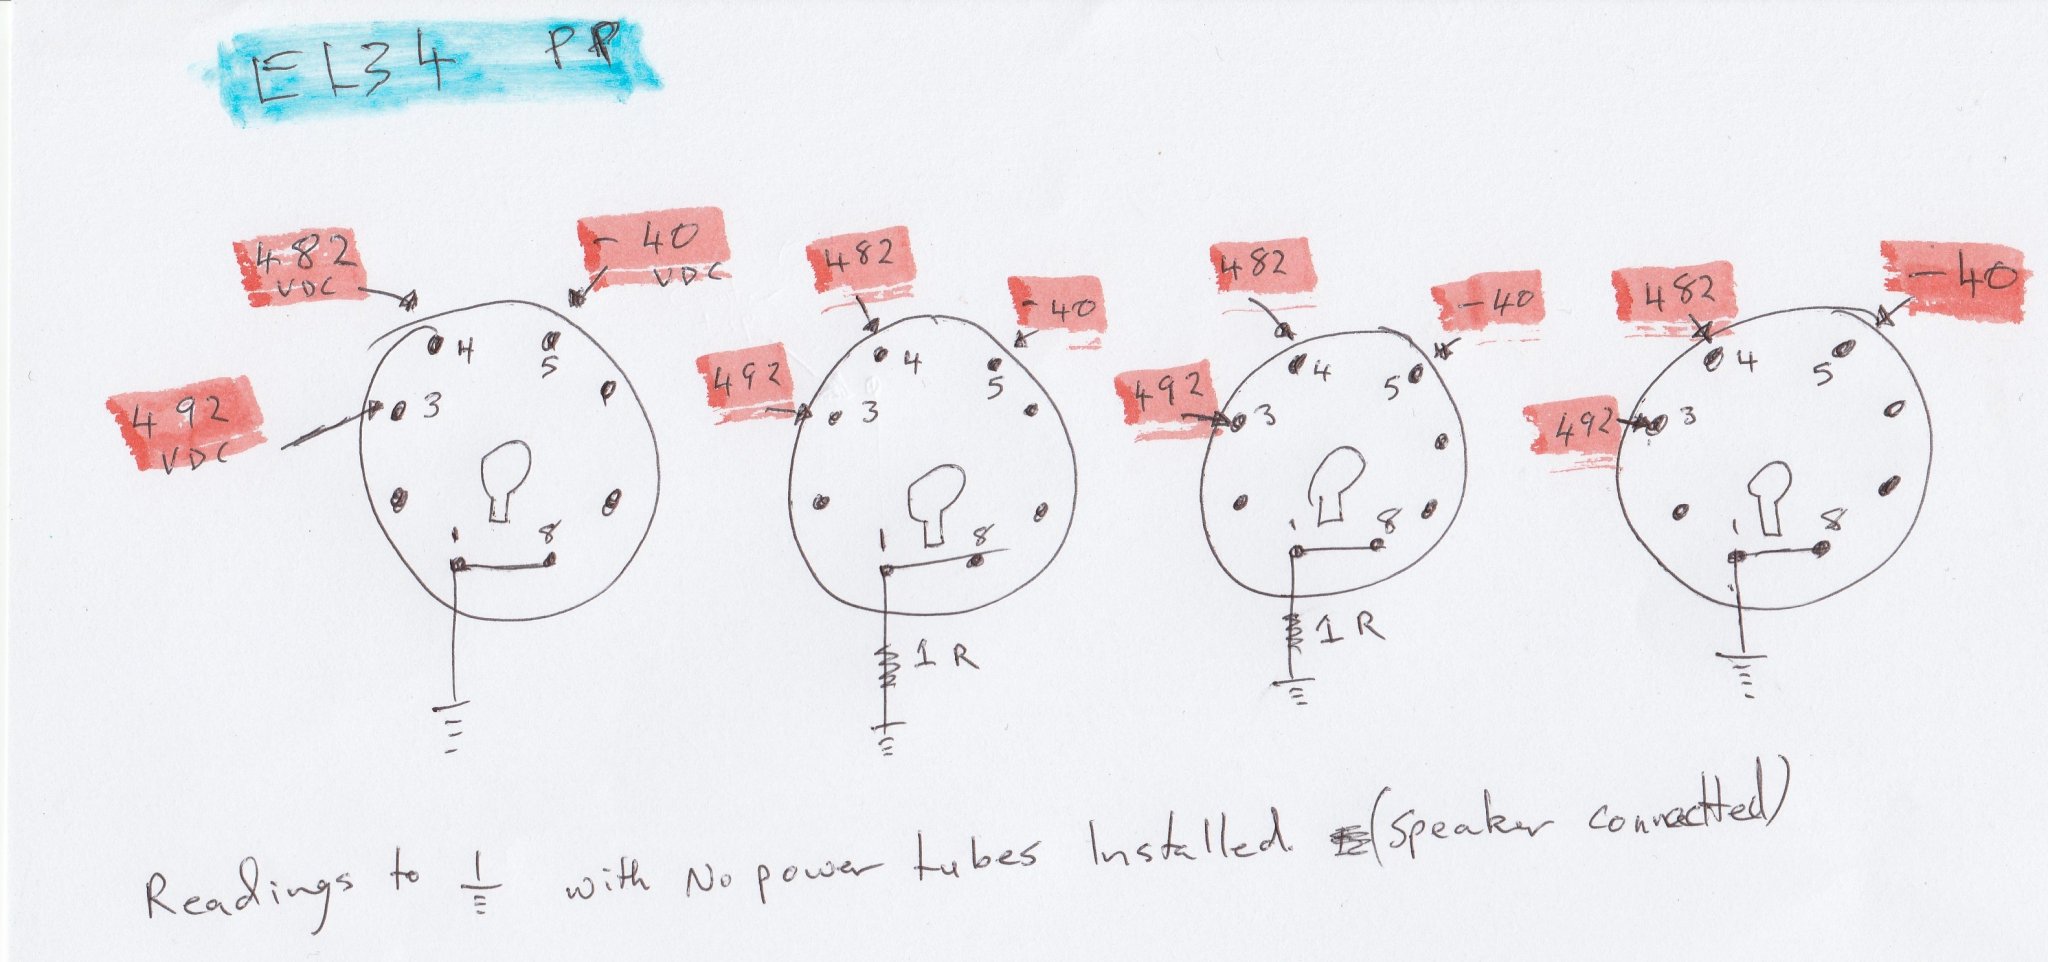 EL34 PP
482 VDC
-40 VDC
492 VDC
4
5
3
1
8
482
-40
492
4
5
3
1
8
1 R
482
-40
492
4
5
3
1
8
1 R
482
-40
492
4
5
3
1
8
Readings to with No power tubes Installed. (Speaker connectted)